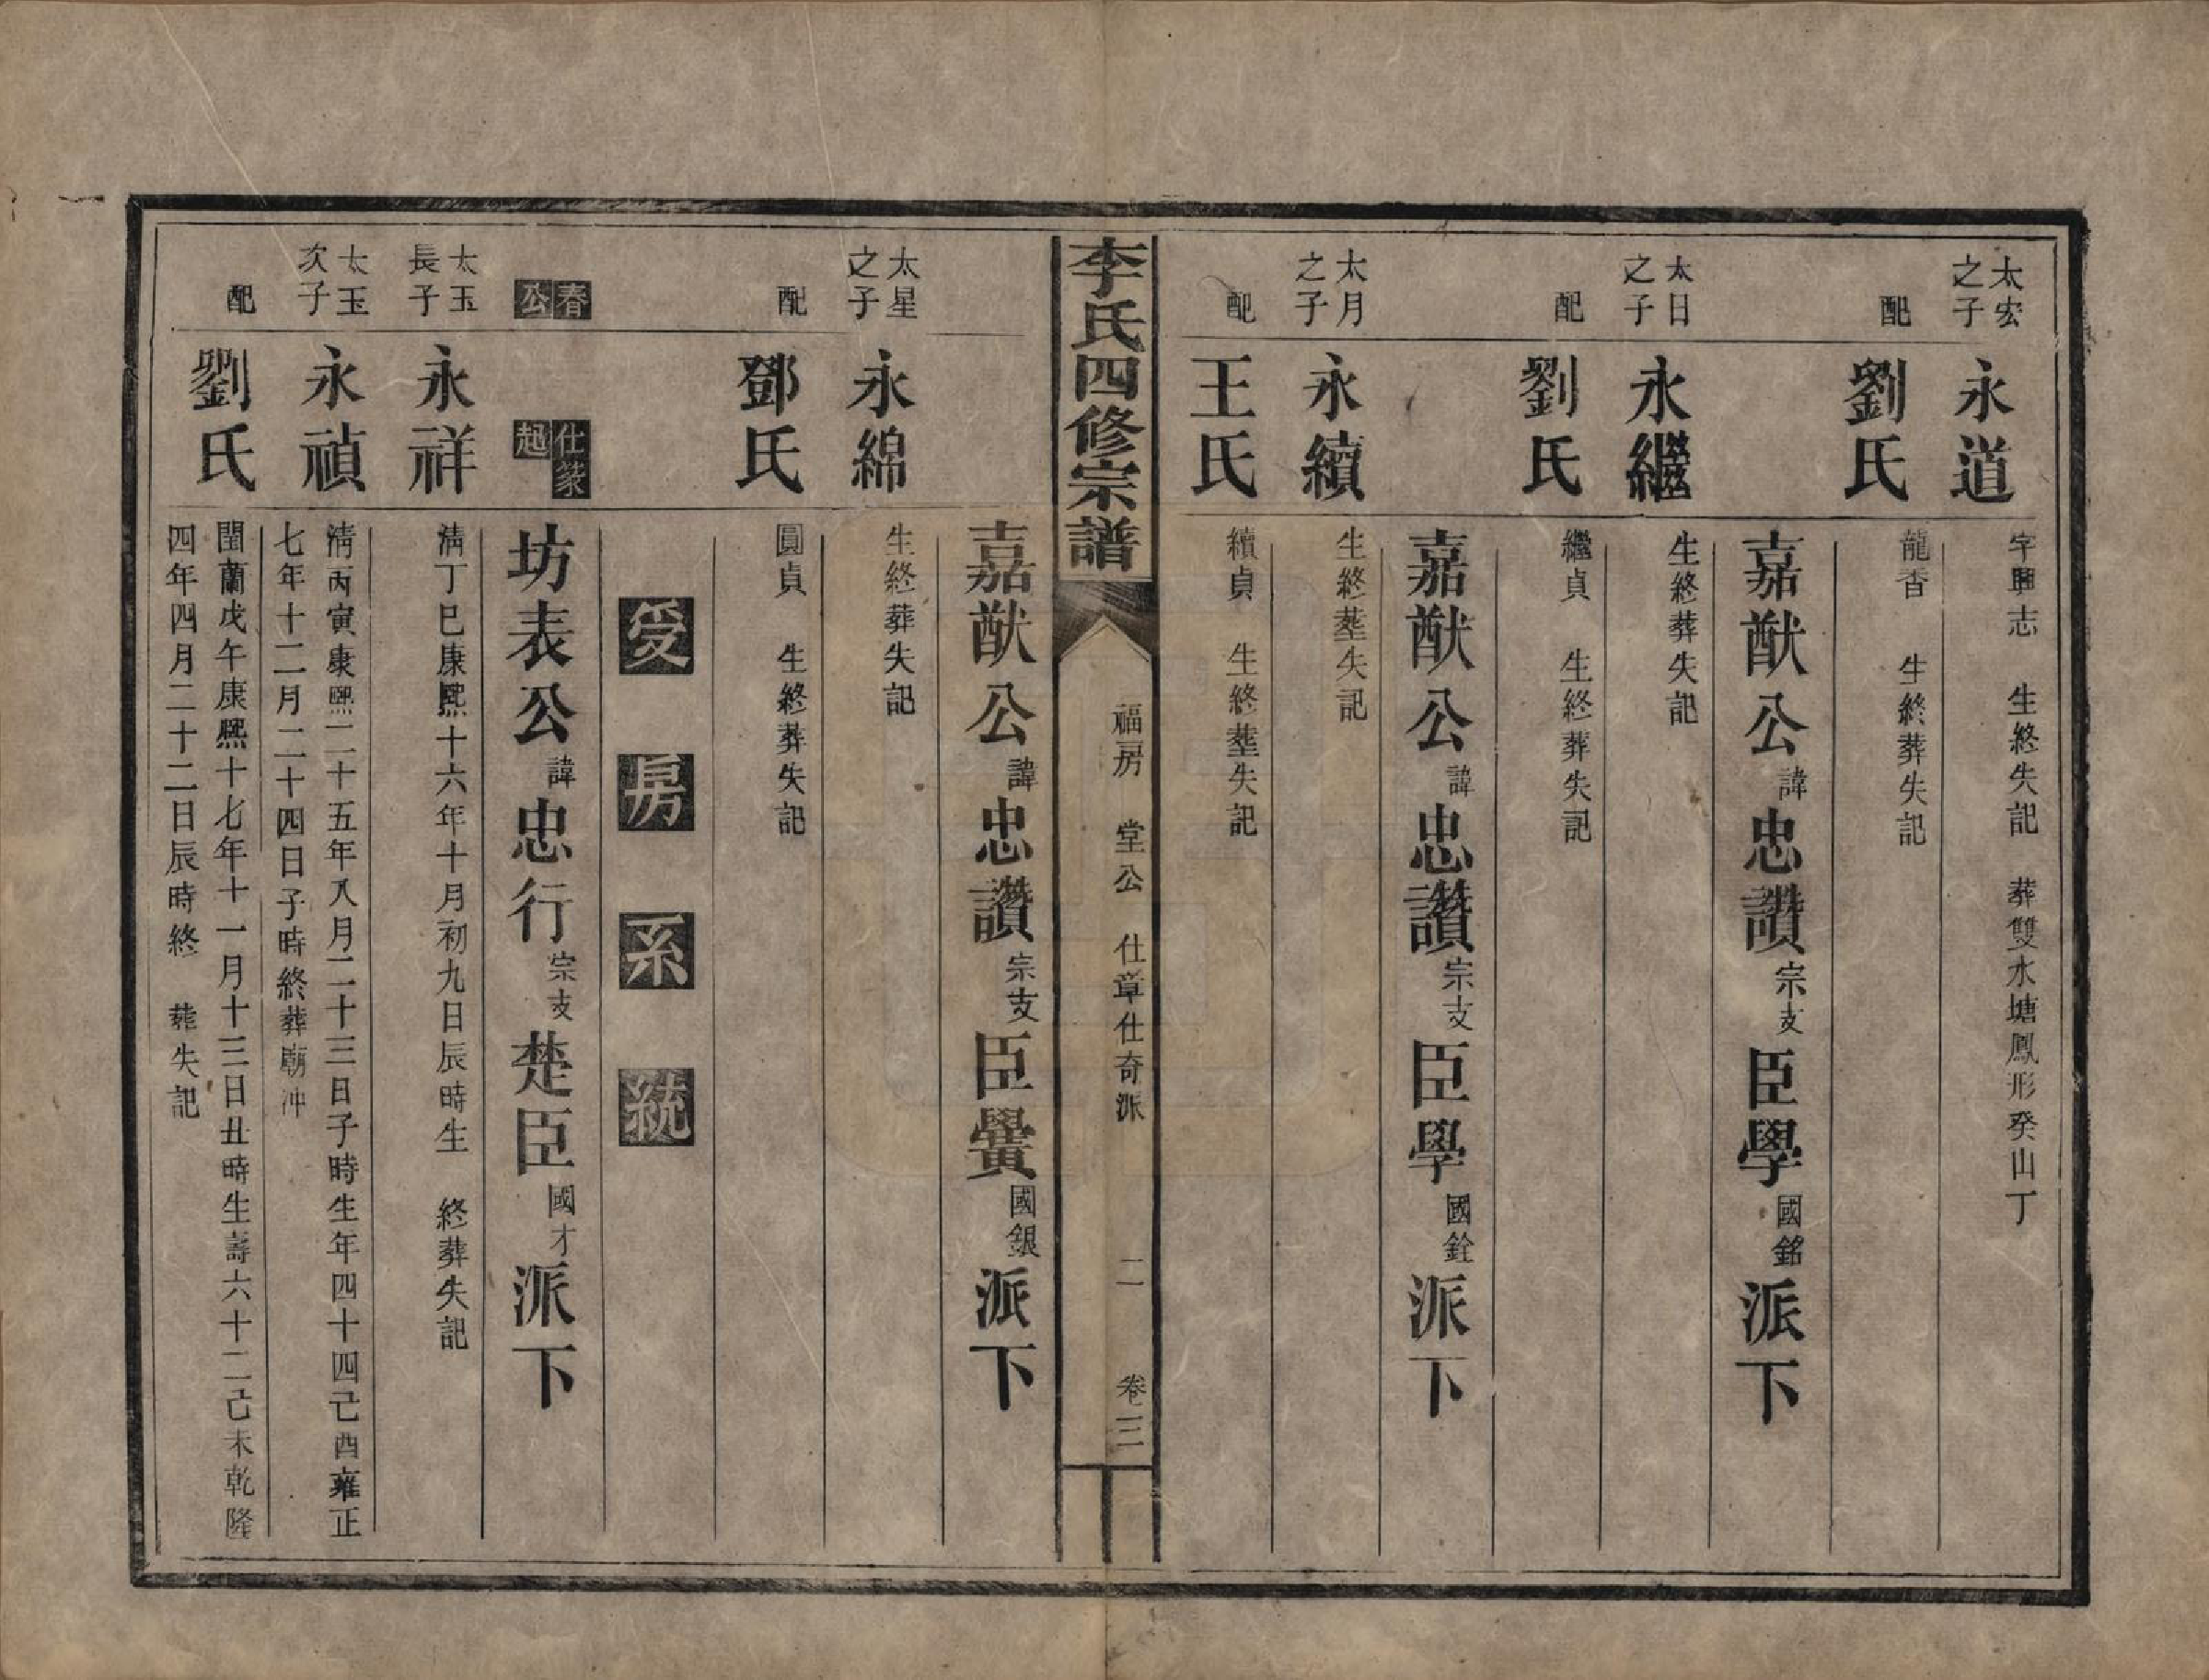 太宏之子
永道
字興志　生終失記　葬雙水塘鳳形癸山丁
配
劉氏
龍香　生終葬失記
嘉猷公諱忠讚宗支臣學國銘派下
太日之子
永繼
生終葬失記
配
劉氏
繼貞　生終葬失記
嘉猷公諱忠讚宗支臣學國銓派下
太月之子
永續
生終塟失記
配
王氏
續貞　生終塟失記
李氏四修宗譜
福房　堂公　仕章仕奇派
二
卷三
嘉猷公諱忠讚宗支臣黌國銀派下
太星之子
永綿
生終葬失記
配
鄧氏
圓貞　生終葬失記
受房系統
春公
仕篆起
坊表公諱忠行宗支楚臣國才派下
太玉長子
永祥
清丁巳康熙十六年十月初九日辰時生　終葬失記
太玉次子
永禎
清丙寅康熙二十五年八月二十三日子時生年四十四己酉雍正
七年十二月二十四日子時終葬廟沖
配
劉氏
閏蘭戊午康熙十七年十一月十三日丑時生壽六十二己未乾隆
四年四月二十二日辰時終　葬失記